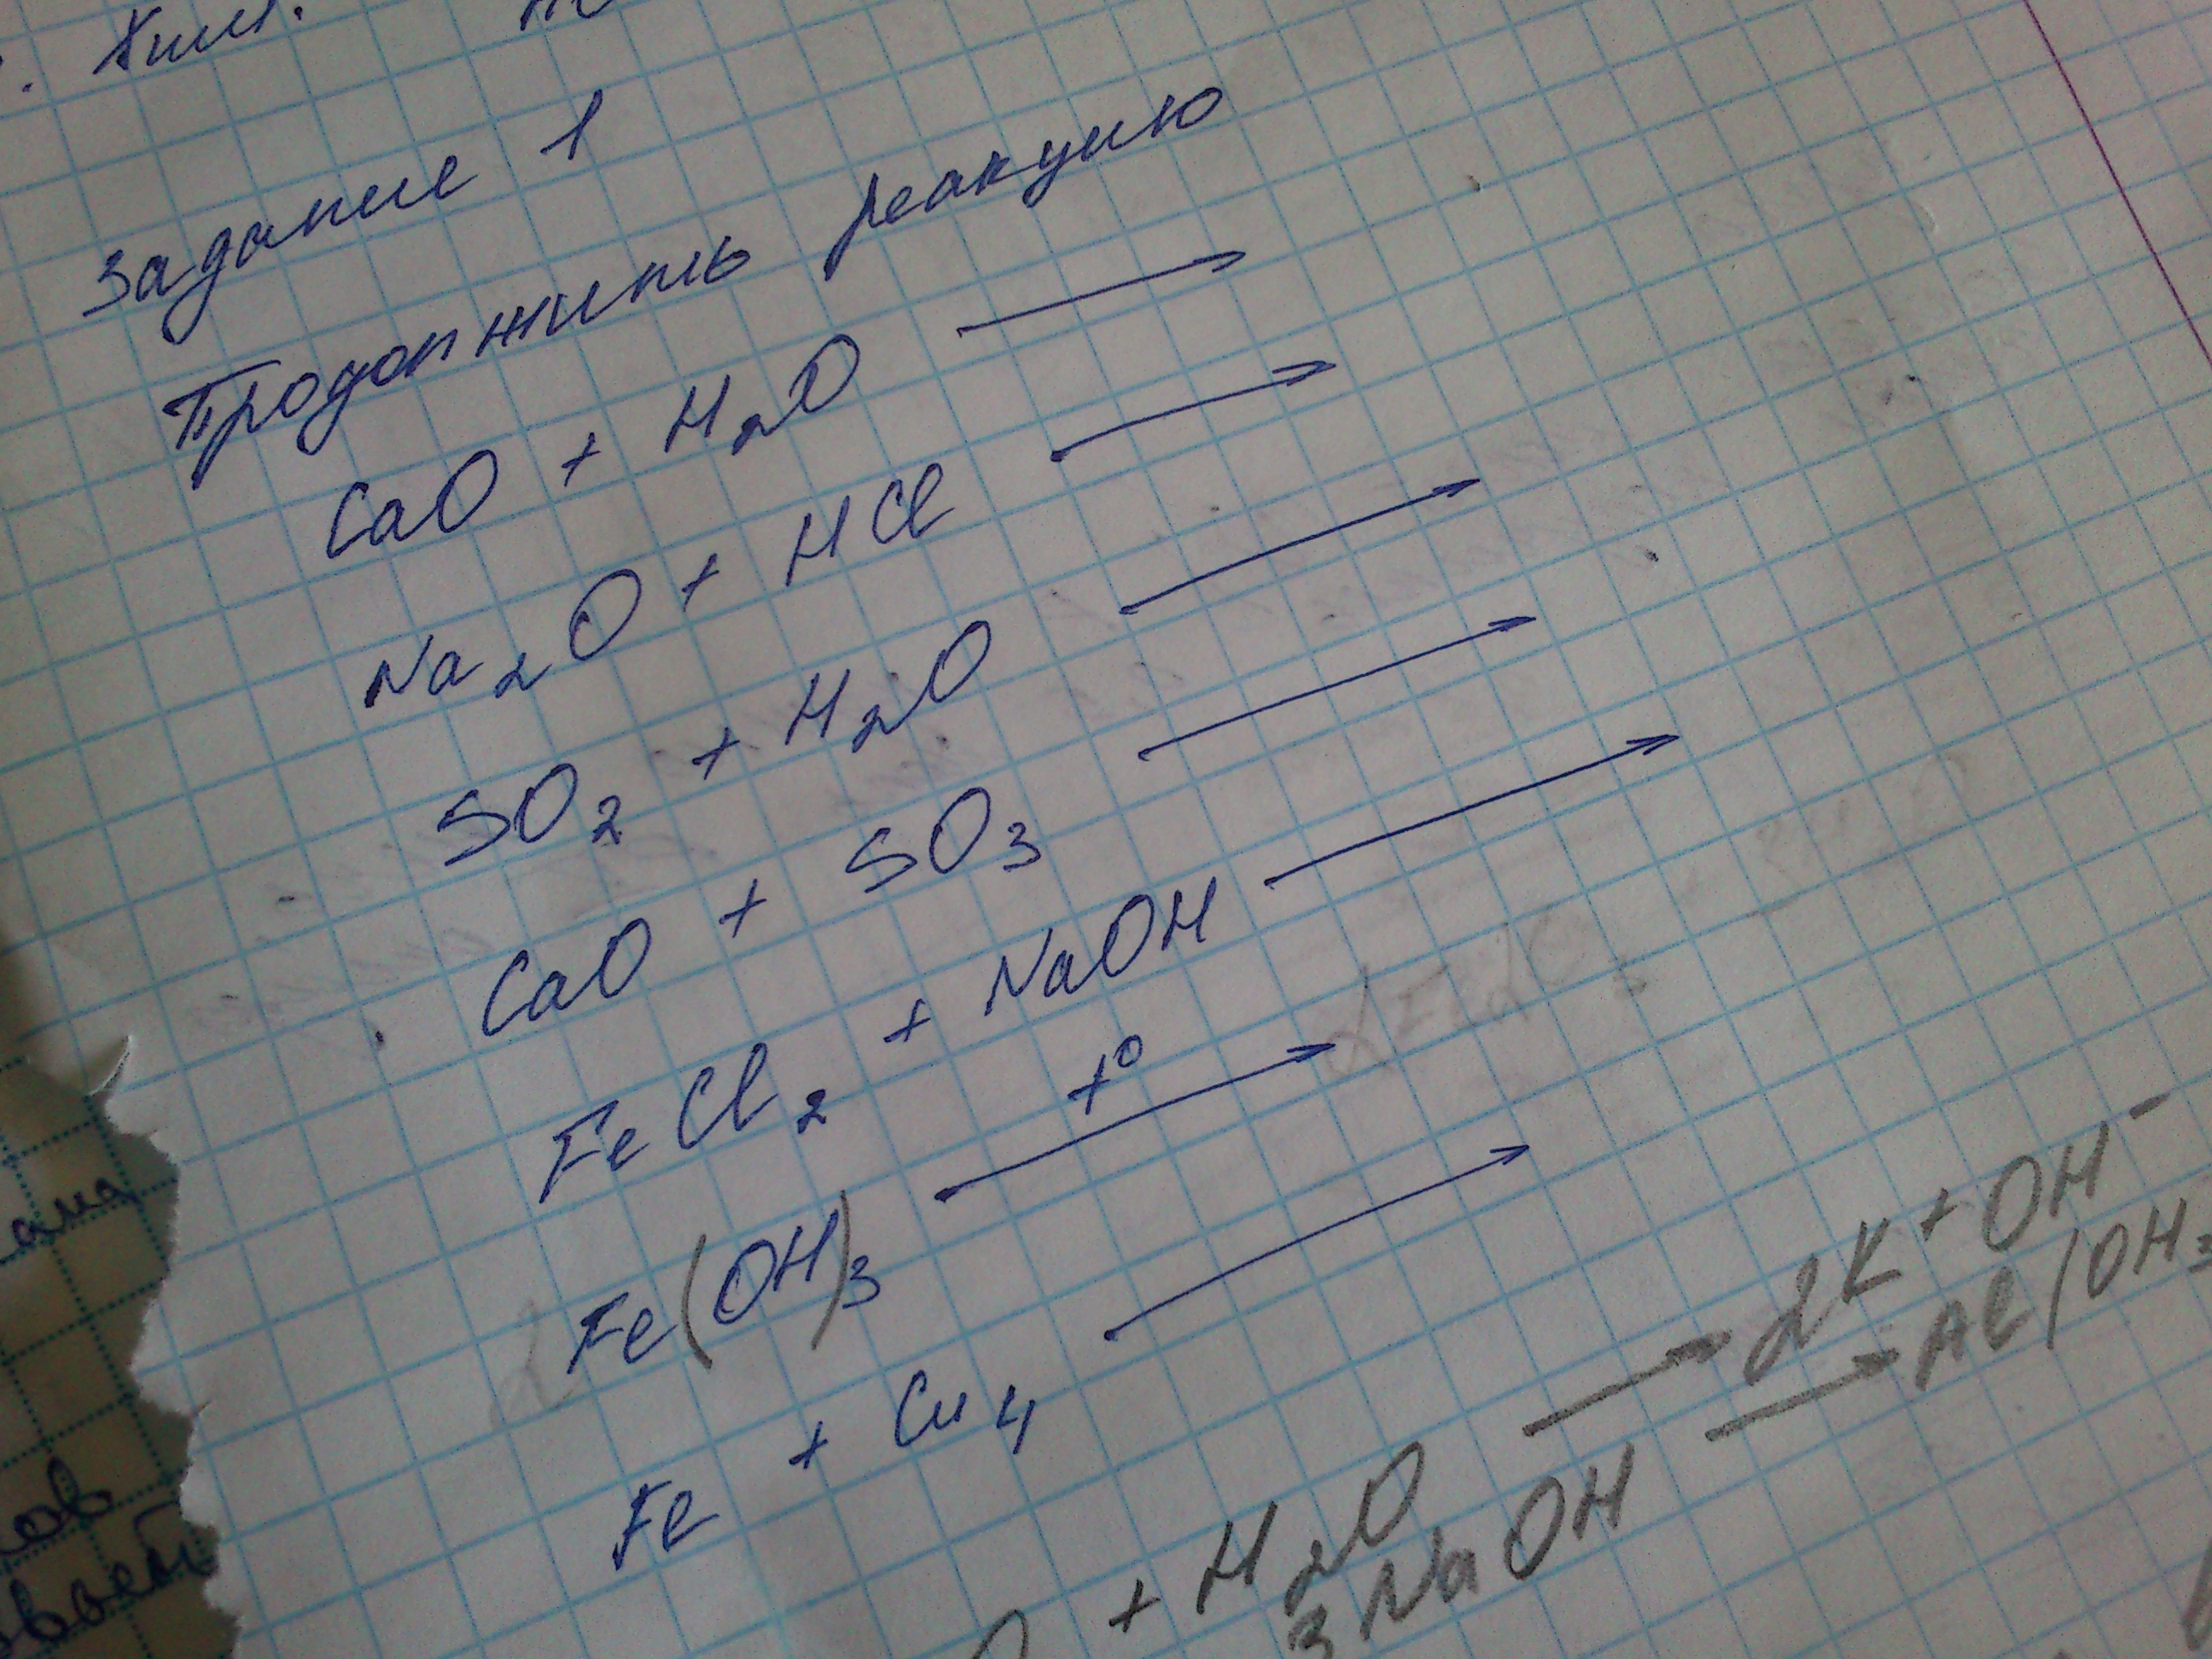 Хим.
Задание 1
Продолжить реакцию
CaO + H₂O →
Na₂O + HCl →
SO₂ + H₂O →
CaO + SO₃ →
FeCl₂ + NaOH →
Fe(OH)₃ t° →
Fe + Cu 4 →
+ H₂O → 2K + OH⁻
3NaOH → Al(OH₃